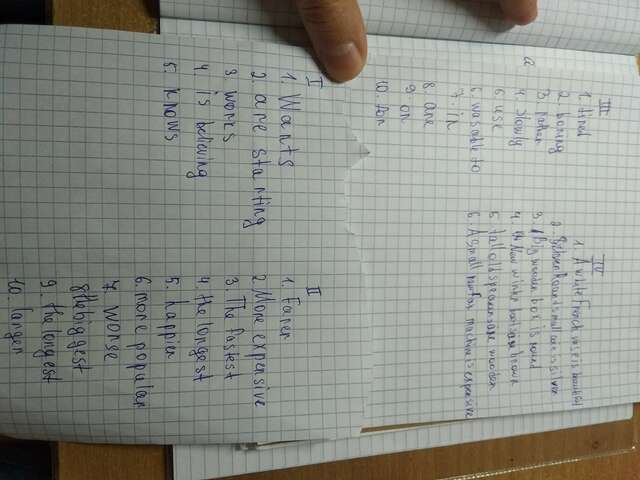 I
1. Wants
2. are starting
3. works
4. is believing
5. knows
II
1. Faner
2. More expensive
3. The fastest
4. the longest
5. happier
6. more popular
7. worse
8. the biggest
9. the longest
10. larger
III
1. tired
2. boring
3. rather
4. slowly
6 use
6 was able to
7. in
8 are
9 on
10. for
a
IV
1. A white French is beautiful
2. small is silver
3. A Big wooden box is round
4. New brown
5 tall old are wooden
6. A small machine is expensive